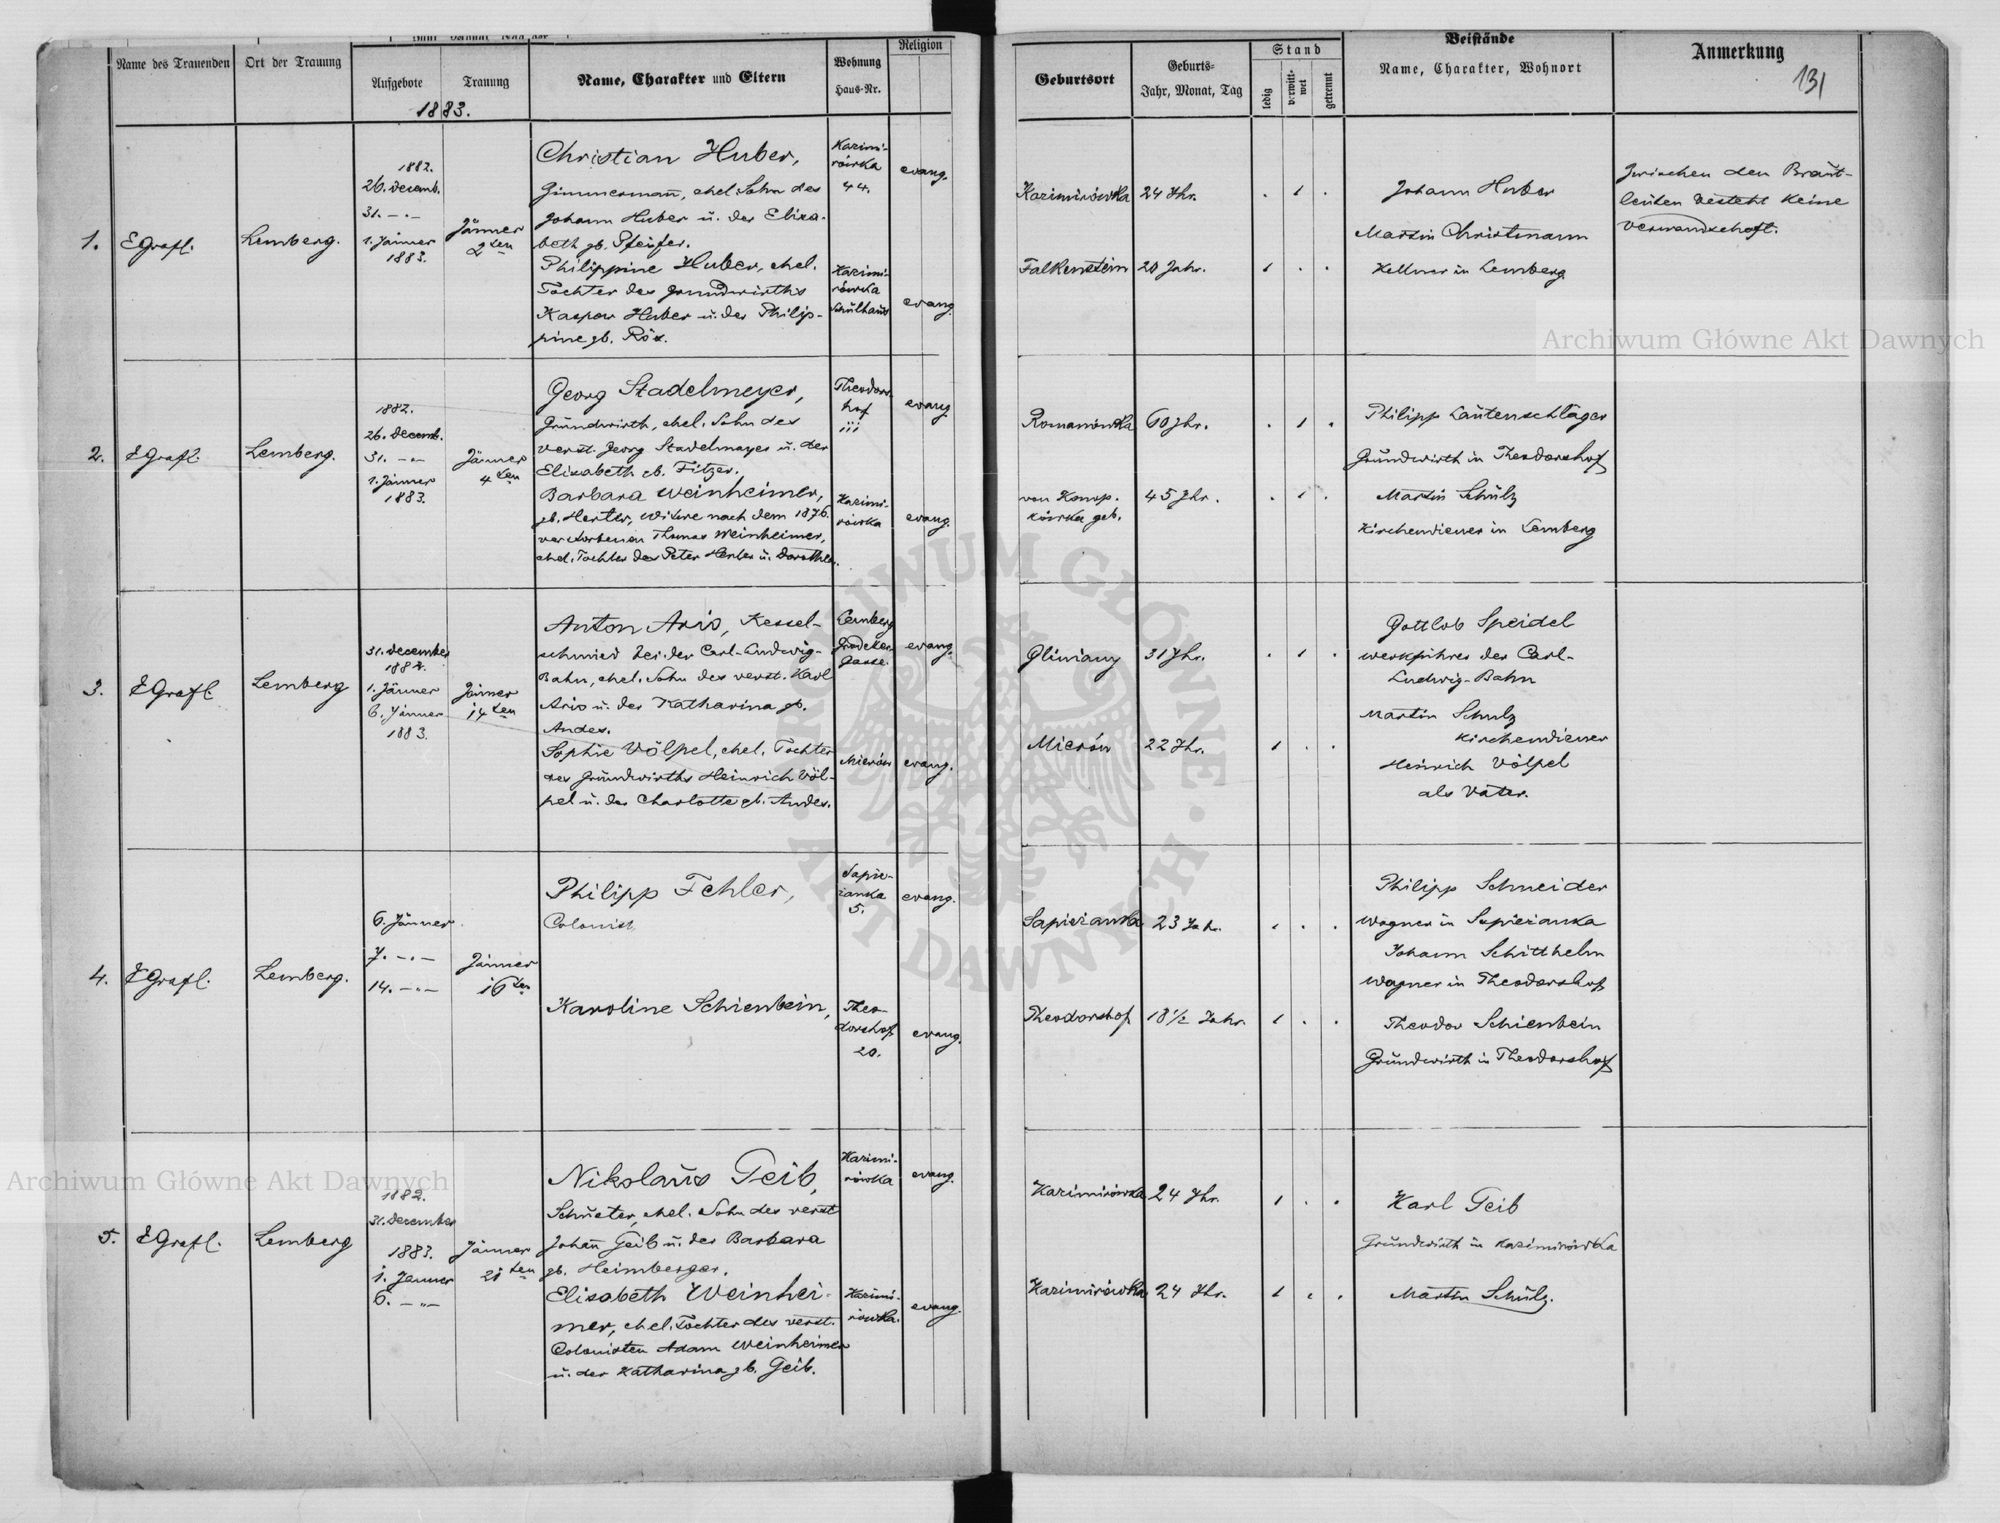 Name des Trauenden
Ort der Trauung
Aufgebote
Trauung
1883.
Name, Charakter und Eltern
Wohnung
Haus-Nr.
Religion
Geburtsort
Geburts-
Jahr, Monat, Tag
Stand
ledig
verwitt-
wet
getrennt
Beistände
Name, Charakter, Wohnort
Anmerkung
131
1.
EGrafl.
Lemberg.
1882.
26. Decemb.
31. -"-
1. Jänner
1883.
Jänner
2ten
Christian Huber,
Zimmermann, ehel. Sohn des
Johann Huber u. der Elisa-
beth gb. Pfeifer.
Philippine Huber, ehel.
Tochter des Grundwirths
Kaspar Huber u. der Philip-
pine gb. Röx.
Kazimi-
rówka
44.
Kazimi-
rówka
Schulhaus
evang.
evang.
Kazimirówka
24 Jhr.
Falkenstein
20 Jahr.
Johann Huber
Martin Christmann
Kellner in Lemberg.
Zwischen den Braut-
leuten besteht keine
Verwandschaft.
2.
EGrafl.
Lemberg.
1882.
26. Decemb.
31. -"-
1. Jänner
1883.
Jänner
4ten
Georg Stadelmeyer,
Grundwirth, ehel. Sohn des
verst. Georg Stadelmayer u. der
Elisabeth gb. Fitzer.
Barbara Weinheimer,
gb. Herter, Witwe nach dem 1876.
verstorbenen Thomas Weinheimer,
ehel. Tochter des Peter Herter u. Dorothea.
Theodors-
hof
iii
Kazimi-
rówka
evang.
evang.
Romanówka
60 Jhr.
von Konop-
kówka geb.
45 Jhr.
Philipp Lautenschlager
Grundwirth in Theodorshof
Martin Schulz
Kirchendiener in Lemberg
3.
EGrafl.
Lemberg
31. December
1882.
1. Jänner
6. Jänner
1883.
Jänner
14ten
Anton Aris, Kessel-
schmied bei der Carl-Ludwig-
Bahn, ehel. Sohn des verst. Karl
Aris u. der Katharina gb.
Andes.
Sophie Völpel, ehel. Tochter
des Grundwirths Heinrich Völ-
pel u. der Charlotte gb. Andes.
Lemberg
Grodeker
Gasse.
Mierów
evang.
evang.
Gliniany
31 Jhr.
Mierów
22 Jhr.
Gottlob Speidel
Werkführer der Carl-
Ludwig-Bahn
Martin Schulz
Kirchendiener
Heinrich Völpel
als Vater.
4.
EGrafl.
Lemberg.
6. Jänner
7. -"-
14. -"-
Jänner
16ten
Philipp Fehler,
Colonist
Karoline Schienbein,
Sapie-
żanka
5.
Theo-
dorshof
20.
evang.
evang.
Sapieżanka
23 Jahr.
Theodorshof
18 1/2 Jahr.
Philipp Schneider
Wagner in Sapieżanka
Johann Schitthelm
Wagner in Theodorshof
Theodor Schienbein
Grundwirth in Theodorshof
5.
EGrafl.
Lemberg
1882.
31. December
1883.
1. Jänner
6. -"-
Jänner
21ten
Nikolaus Geib,
Schuster, ehel. Sohn des verst.
Johann Geib u. der Barbara
gb. Heimberger.
Elisabeth Weinhei-
mer, ehel. Tochter des verst.
Colonisten Adam Weinheimer
u. der Katharina gb. Geib.
Kazimi-
rówka
Kazimi-
rówka.
evang.
evang.
Kazimirówka
24 Jhr.
Kazimirówka
24 Jhr.
Karl Geib
Grundwirth in Kazimirówka
Martin Schulz.
Archiwum Główne Akt Dawnych
Archiwum Główne Akt Dawnych
ARCHIWUM GŁÓWNE AKT DAWNYCH